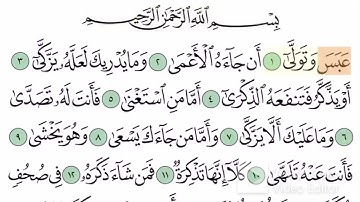 بِسْمِ اللَّهِ الرَّحْمَٰنِ الرَّحِيمِ
عَبَسَ وَتَوَلَّىٰ ١ أَن جَاءَهُ الْأَعْمَىٰ ٢ وَمَا يُدْرِيكَ لَعَلَّهُ يَزَّكَّىٰ ٣
أَوْ يَذَّكَّرُ فَتَنفَعَهُ الذِّكْرَىٰ ٤ أَمَّا مَنِ اسْتَغْنَىٰ ٥ فَأَنتَ لَهُ تَصَدَّىٰ
٦ وَمَا عَلَيْكَ أَلَّا يَزَّكَّىٰ ٧ وَأَمَّا مَن جَاءَكَ يَسْعَىٰ ٨ وَهُوَ يَخْشَىٰ ٩
فَأَنتَ عَنْهُ تَلَهَّىٰ ١٠ كَلَّا إِنَّهَا تَذْكِرَةٌ ١١ فَمَن شَاءَ ذَكَرَهُ ١٢ فِي صُحُفٍ
Video Editor